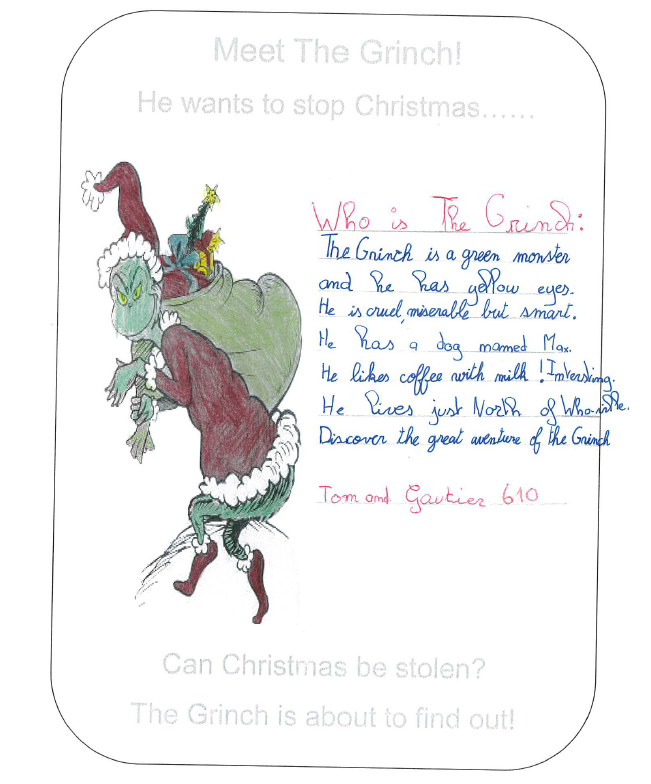 Meet The Grinch!
He wants to stop Christmas......
Who is The Grinch:
The Grinch is a green monster
and he has yellow eyes.
He is cruel, miserable but smart.
He has a dog named Max.
He likes coffee with milk ! Intersting.
He lives just North of Who-ville.
Discover the great aventure of the Grinch
Tom and Gautier 610
Can Christmas be stolen?
The Grinch is about to find out!